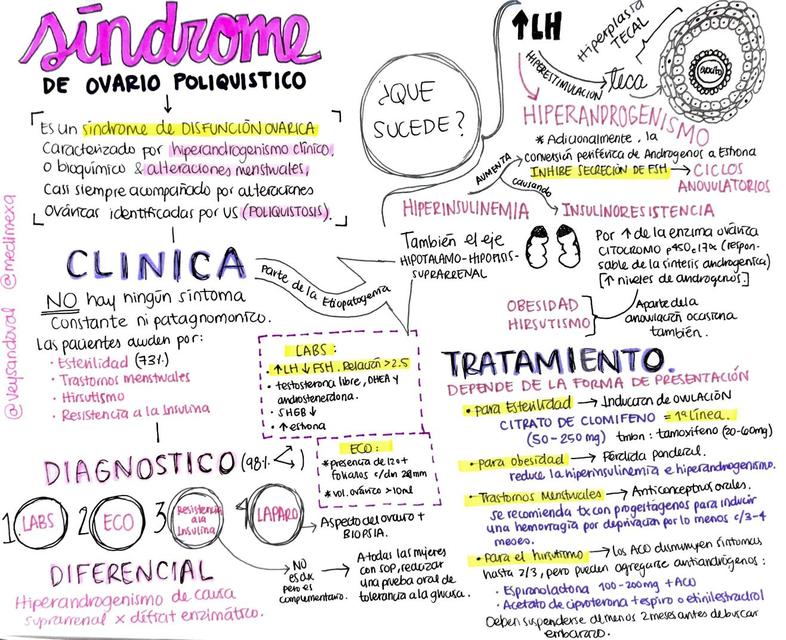 síndrome
DE OVARIO POLIQUISTICO
Es un síndrome de DISFUNCIÓN OVÁRICA
Caracterizado por hiperandrogenismo clínico,
o bioquímico & alteraciones menstruales,
Casi siempre acompañado por alteraciones
Ováricas identificadas por US (POLIQUISTOSIS).
@veysandoval @medimexa
CLINICA
NO hay ningún síntoma
Constante ni patagnomonico.
Las pacientes acuden por:
• Esterilidad (73%)
• Trastornos menstruales
• Hirsutismo
• Resistencia a la Insulina
DIAGNOSTICO (98%
1 LABS
2 ECO
3 Resistencia
a la
Insulina
4 LAPARO
Aspecto del ovario +
BIOPSIA.
NO
es dx
pero es
complementario.
A todas las mujeres
con SOP, realizar
una prueba oral de
tolerancia a la glucosa.
DIFERENCIAL
Hiperandrogenismo de causa
suprarrenal x déficit enzimático.
¿QUE
SUCEDE?
↑LH
HIPERESTIMULACIÓN
teca
Hiperplasia
TECAL
OVOCITO
HIPERANDROGENISMO
* Adicionalmente, la
conversión periférica de Andrógenos a Estrona
INHIBE SECRECIÓN DE FSH → CICLOS
ANOVULATORIOS
AUMENTA
causando
HIPERINSULINEMIA
INSULINORESISTENCIA
También el eje
HIPOTALAMO-HIPOFISIS-
SUPRARRENAL
Por ↑ de la enzima ovárica
CITOCROMO p450c17α (respon-
sable de la síntesis androgénica)
[↑ niveles de andrógenos]
OBESIDAD
HIRSUTISMO
Aparte de la
anovulación ocasiona
también.
Parte de la Etiopatogenia
LABS:
• ↑LH ↓FSH. Relación >2.5
• testosterona libre, DHEA y
androstenediona.
• SHBG ↓
• ↑ estrona
ECO:
* presencia de 12 o +
folículos
* vol. ovárico >10ml
TRATAMIENTO.
DEPENDE DE LA FORMA DE PRESENTACIÓN
• Para Esterilidad → Inductores de ovulación
CITRATO DE CLOMIFENO = 1ª línea.
(50-250 mg) tmbn: tamoxifeno (20-60mg)
• Para obesidad → Pérdida ponderal.
reduce la hiperinsulinemia e hiperandrogenismo.
• Trastornos Menstruales → Anticonceptivos orales.
se recomienda tx con progestágenos para inducir
una hemorragia por deprivación por lo menos c/3-4
meses.
• Para el hirsutismo → los ACO disminuyen síntomas
hasta 2/3, pero pueden agregarse antiandrógenos:
• Espironolactona 100-200mg + ACO
• Acetato de ciproterona + espiro o etinilestradiol
Deben suspenderse al menos 2 meses antes de buscar
embarazo.